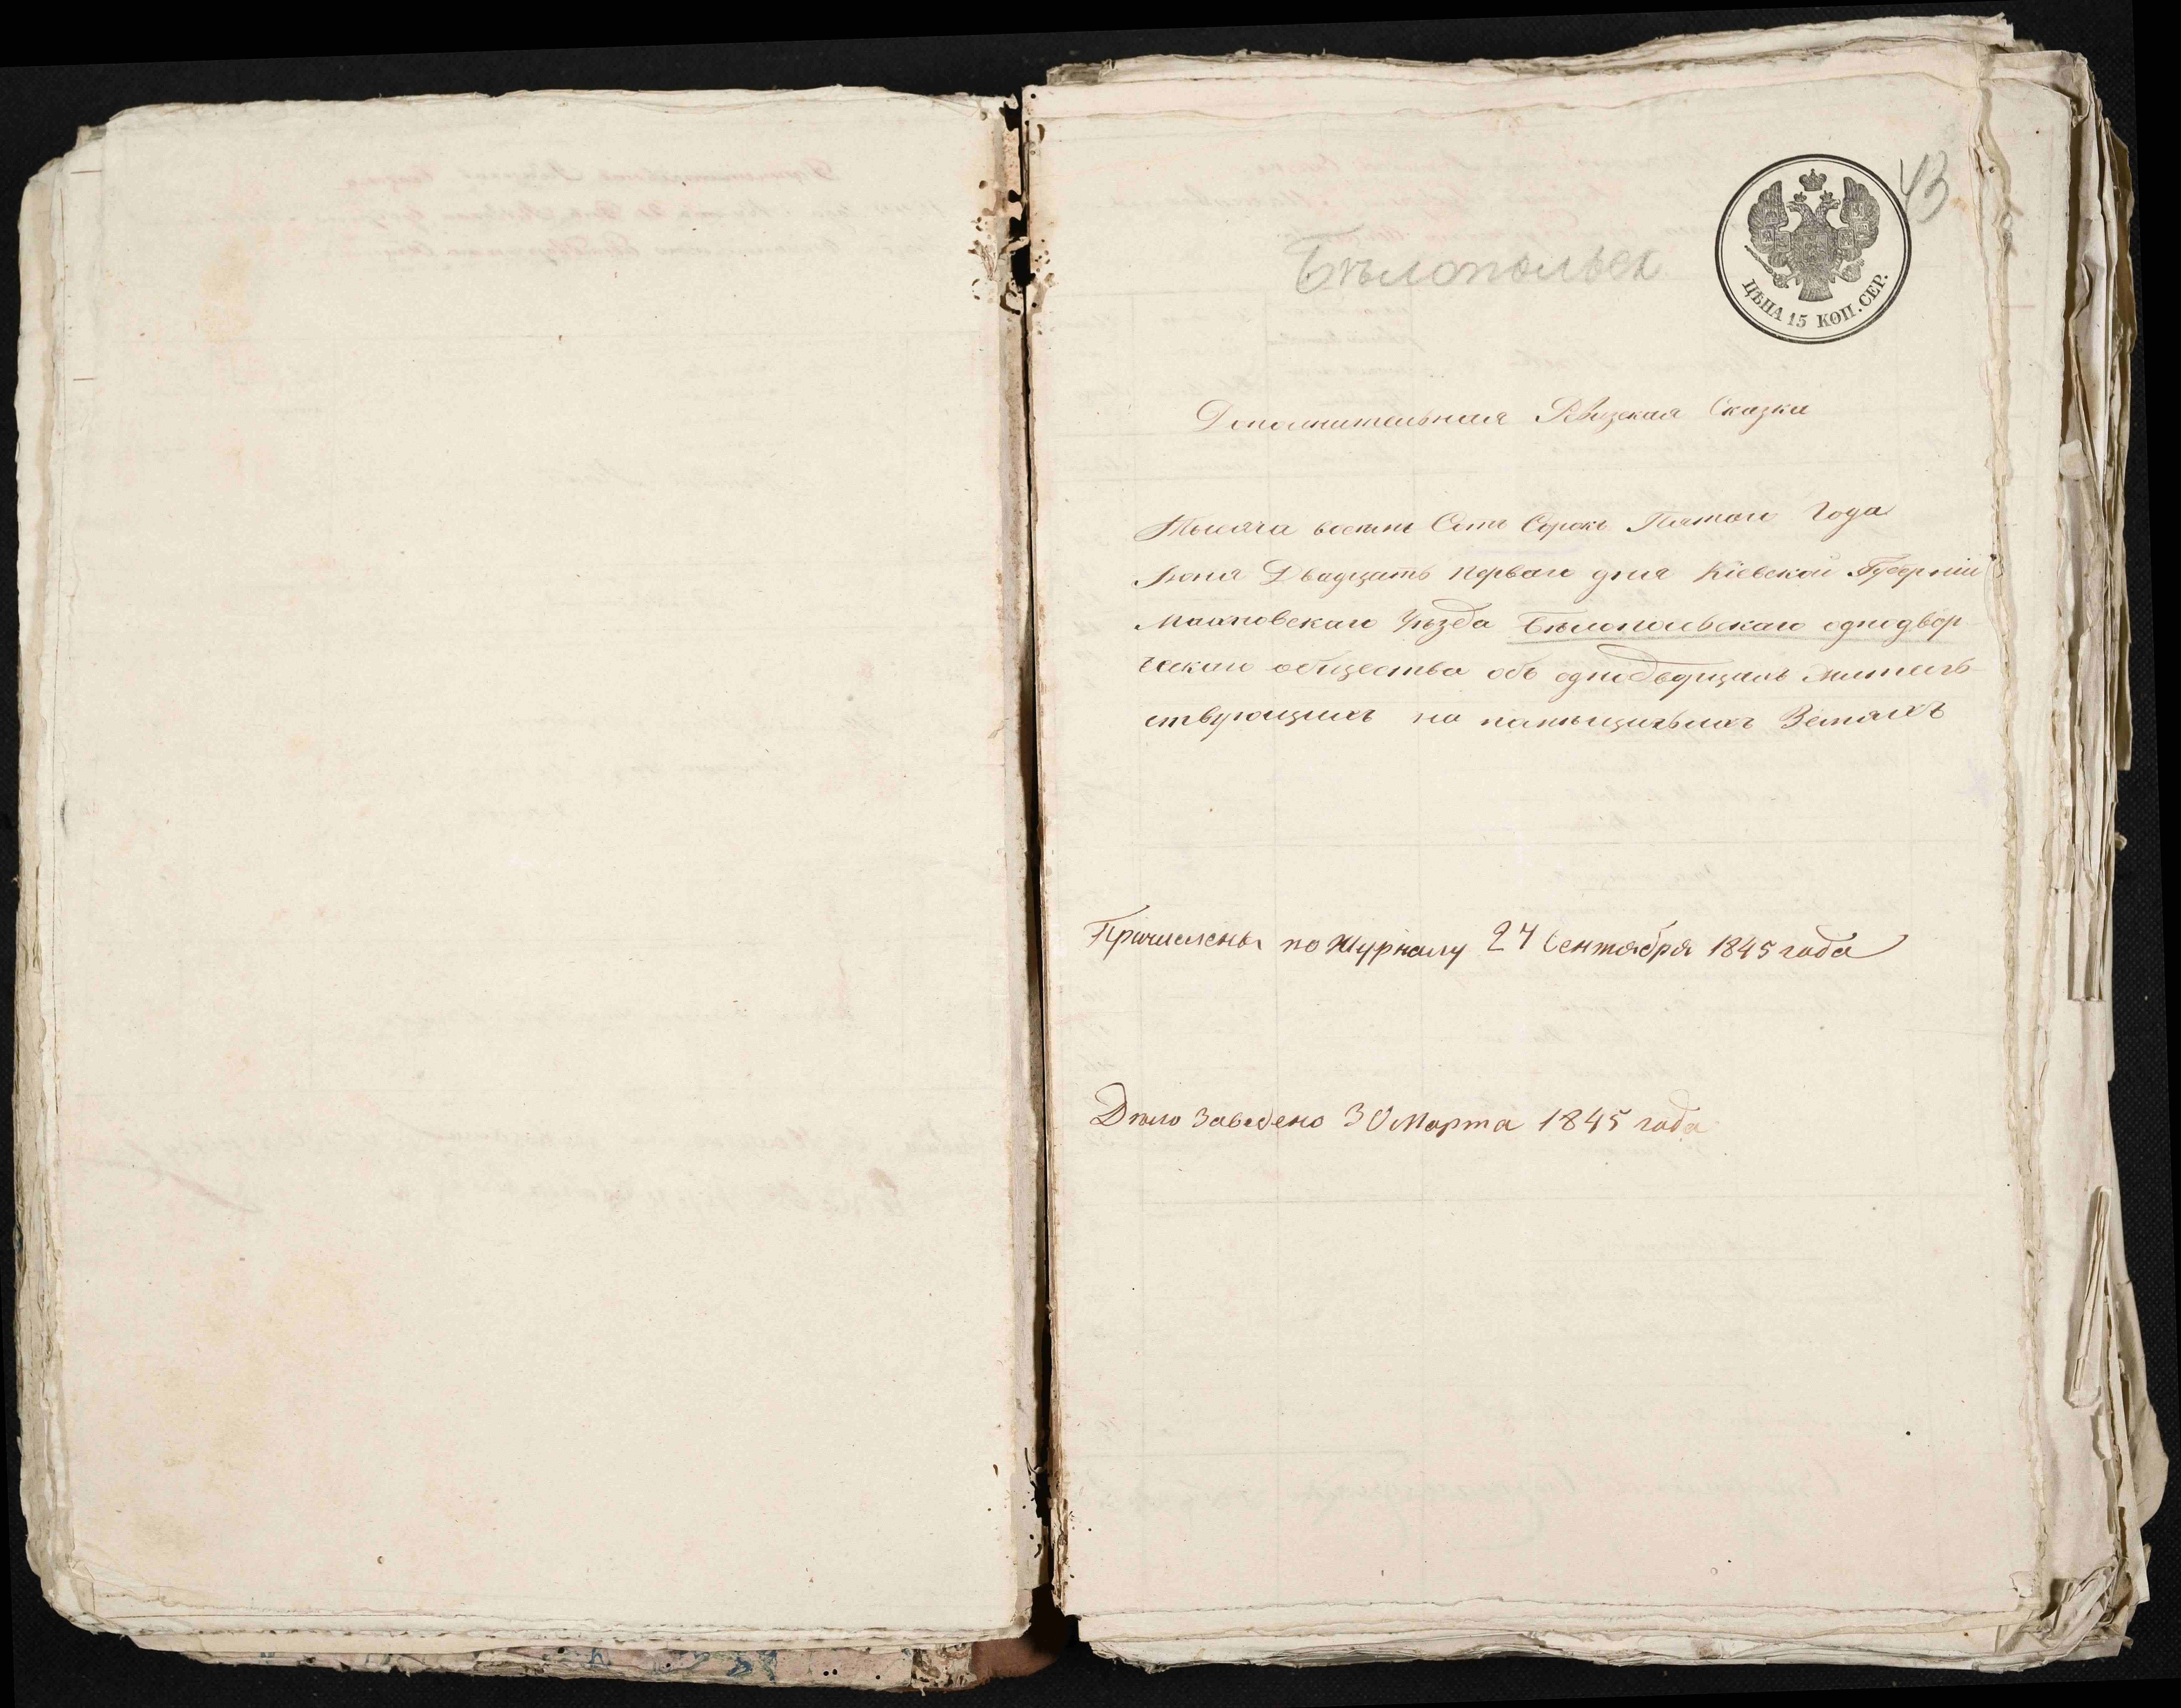 43
Бѣлопольск
ЦѢНА 15 КОП. СЕР.
Дополнительная Ревизская Сказка
Тысяча восемь Сотъ Сорокъ Пятаго Года
Іюня Двадцать перваго дня Кіевской Губерніи
Махновскаго Уѣзда Бѣлопольскаго однодвор
ческаго общества объ однодворцахъ жительствующихъ на помѣщичьихъ Земляхъ
Причислены по Журналу 24 Сентября 1845 года
Дѣло Заведено 30 Марта 1845 года